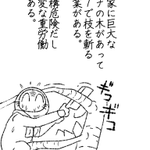 家に巨大な
ナの木があって
ーで枝を斬る
業がある。
構危険だし
変な重労働
ある。
ギコギコ